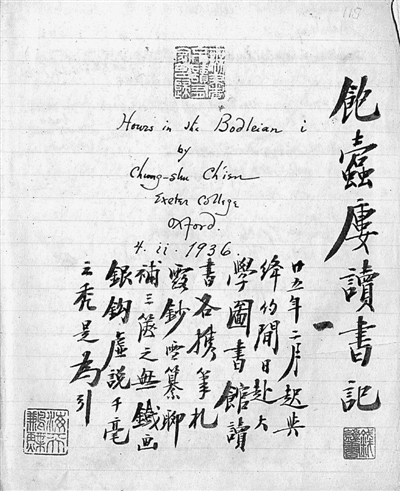 115
飽蠹廔讀書記
一
Hours in the Bodleian i
by
Chung-shu Ch'ien
Exeter College
Oxford.
4. ii. 1936.
廿五年二月起與
絳約間日赴大
學圖書館讀
書各携筆札
露鈔雪纂聊
補三篋之無鐵画
銀鈎虛說千毫
之秃是為引